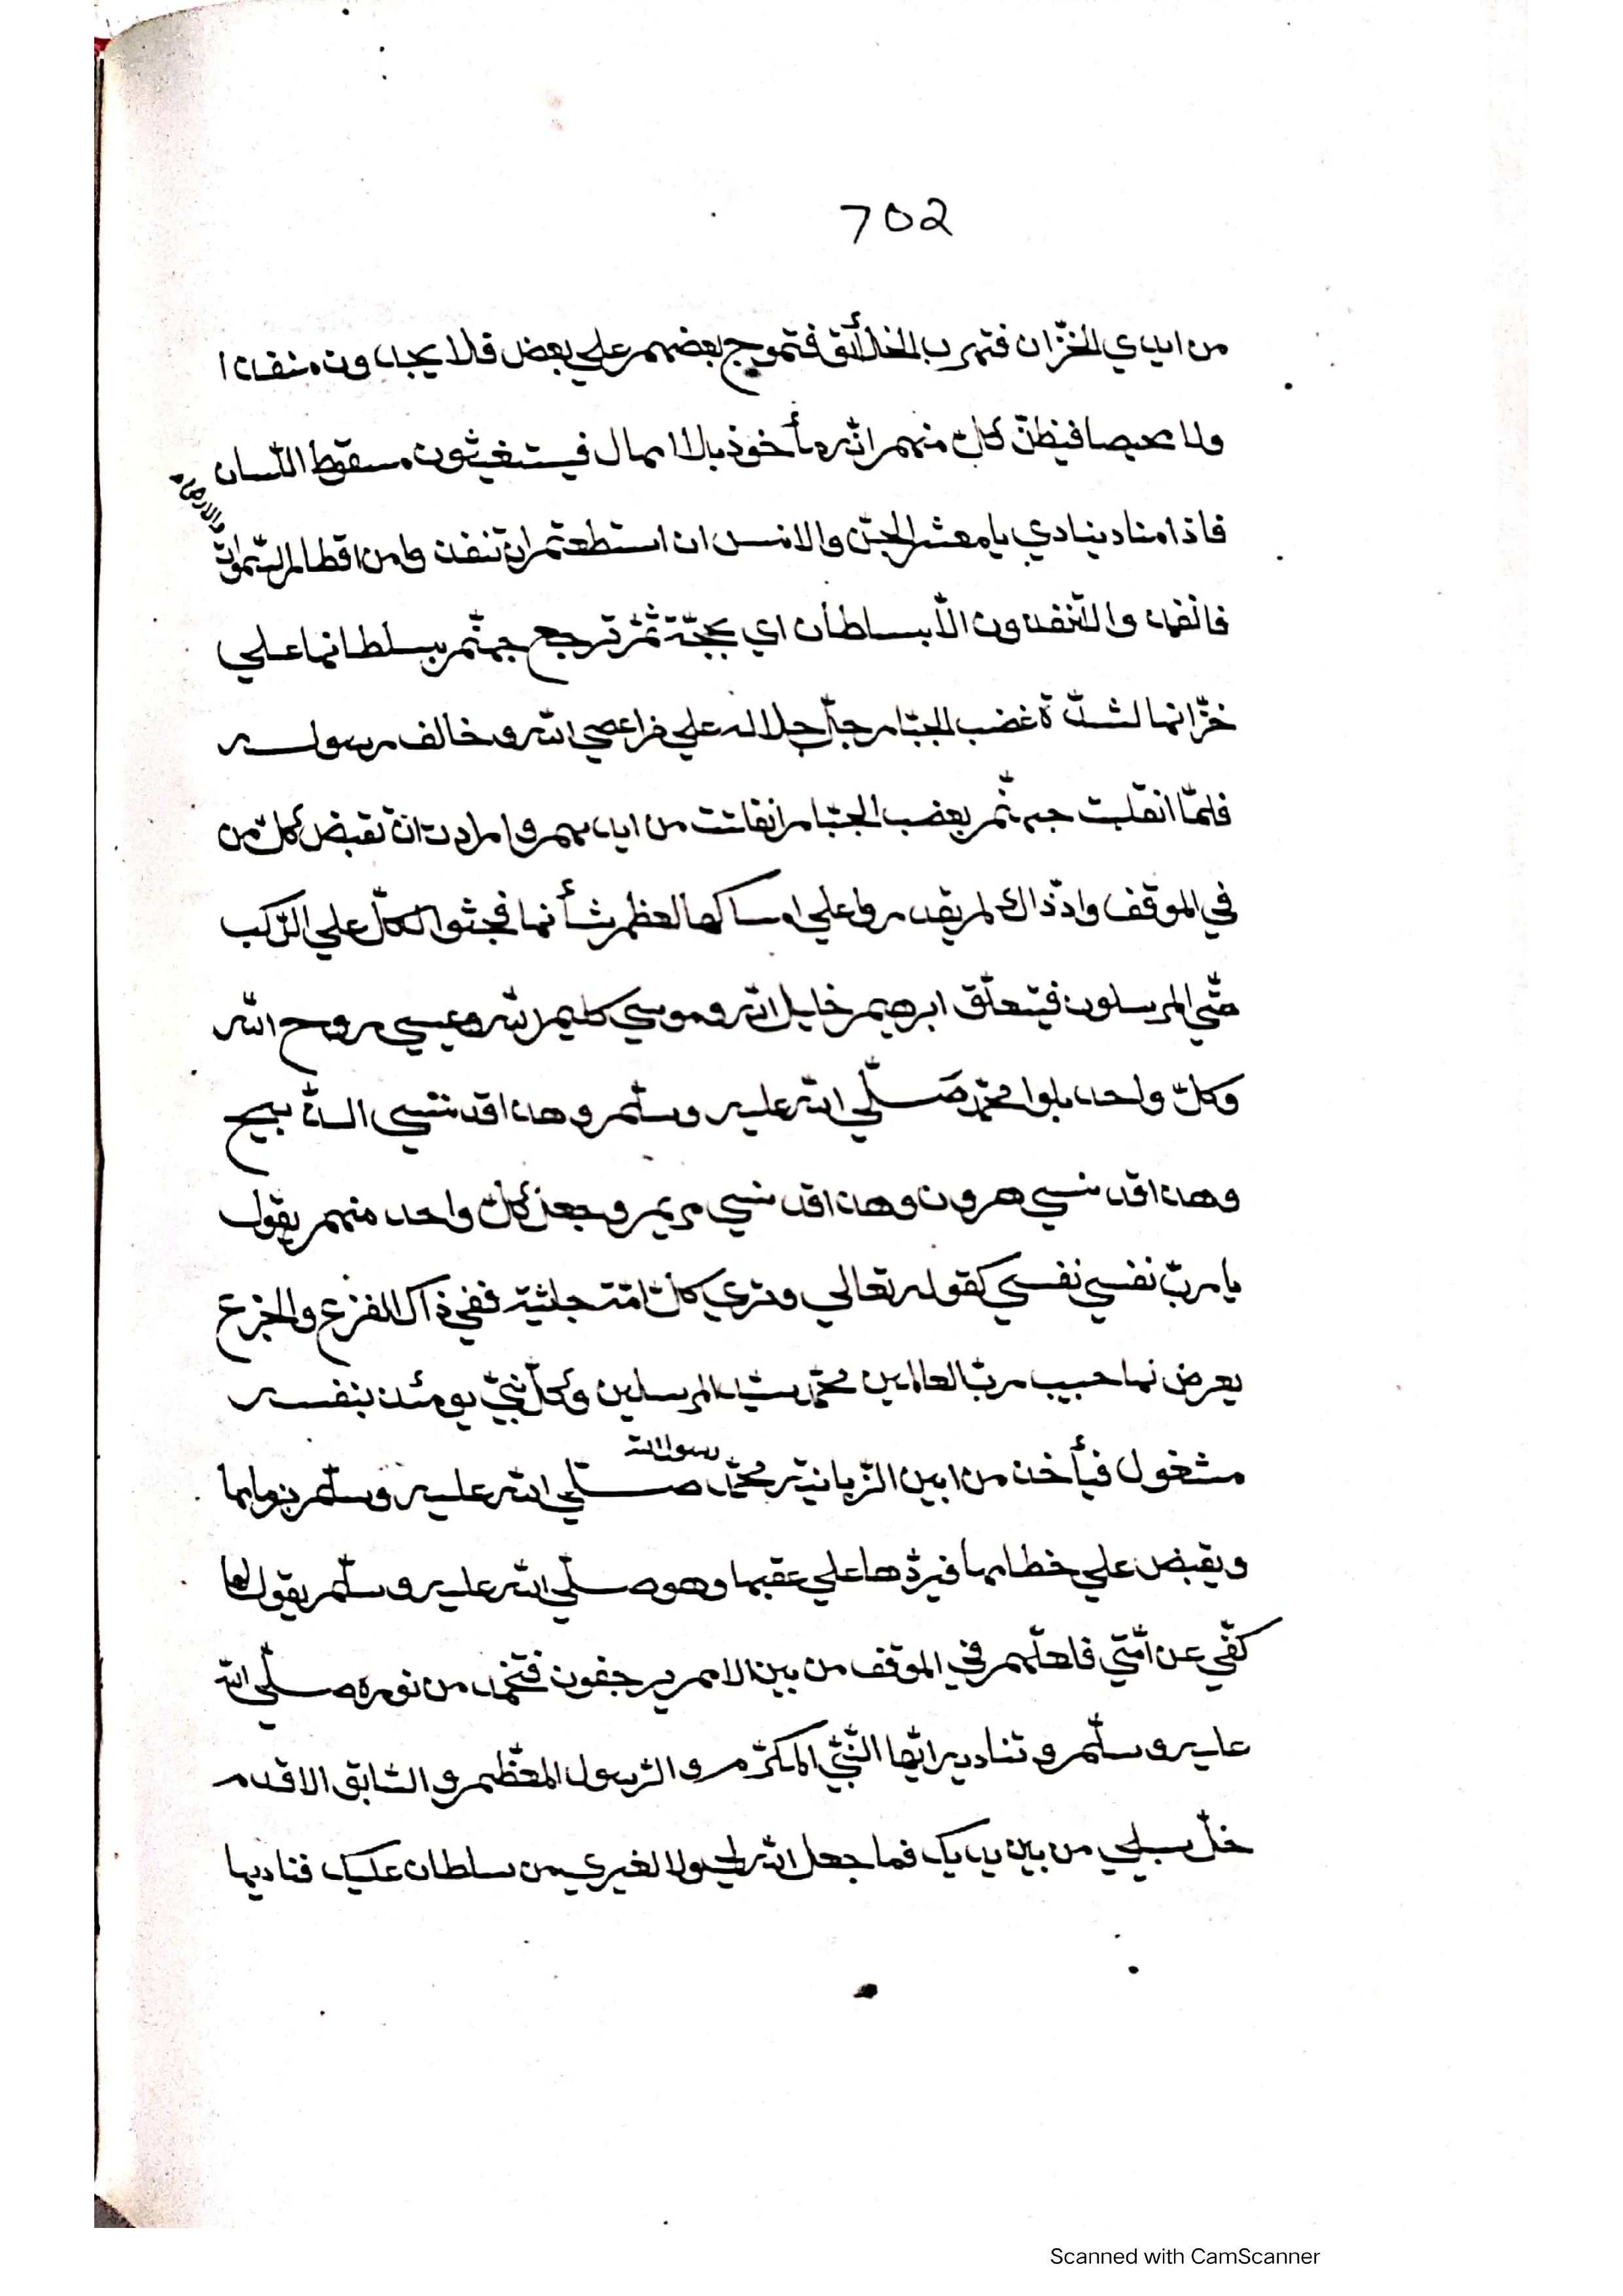 702
من ايدي الخزّان فتهرب الخلائق فتموج بعضهم علي بعض فلا يجدون منفذا
ولا محيصا فيظنّ كلّ منهم انّه مأخوذ بالاعمال فيستغيثون مسقوط اللّسان
فاذا مناد ينادي يا معشر الجنّ والانس ان استطعتم ان تنفذوا من اقطار السّموات
والارض
فانفذوا لا تنفذون الّا بسلطان اي بحجّة ثمّ ترجع جهنّم بسلطانها علي
خزّانها لشدّة غضب الجبّار جلّ جلاله علي من عصي الله و خالف رسوله
فلمّا انقلبت جهنّم بغضب الجبّار انفلتت من ايديهم و ارادت ان تقبض كلّ من
في الموقف واذ ذاك لم يقدروا علي امساكها لعظم شأنها فجثوا الكلّ علي الرّكب
حتّي المرسلون فيتعلّق ابرهيم خليل الله و موسي كليم الله و عيسي روح الله
وكلّ واحد بلوا محمّد صلّي الله عليه وسلّم و هذا قد نسي الذّبيح
وهذا قد نسي هرون وهذا قد نسي مريم و جعل كلّ واحد منهم يقول
يا ربّ نفسي نفسي كقوله تعالي وتري كلّ امّة جاثية ففي ذاك الفزع والجزع
يعرض لها حبيب ربّ العالمين محمّد سيّد المرسلين وكلّ نبيّ يومئذ بنفسه
مشغول فيأخذ من ابين الزّبانية محمّد رسول الله صلّي الله عليه وسلّم بزمامها
ويقبض علي خطامها فيردّها علي عقبها وهو صلّي الله عليه وسلّم يقول لها
كفّي عن امّتي فاهلهم في الموقف من بين الامم يرجفون فتخمد من نوره صلّي الله
عليه وسلّم و تناديه ايّها النّبيّ المكرّم و الرّسول المعظّم و السّابق الاقدم
خلّ سبيلي من بين يديك فما جعل الله لي ولا لغيري من سلطان عليك فناديها
Scanned with CamScanner